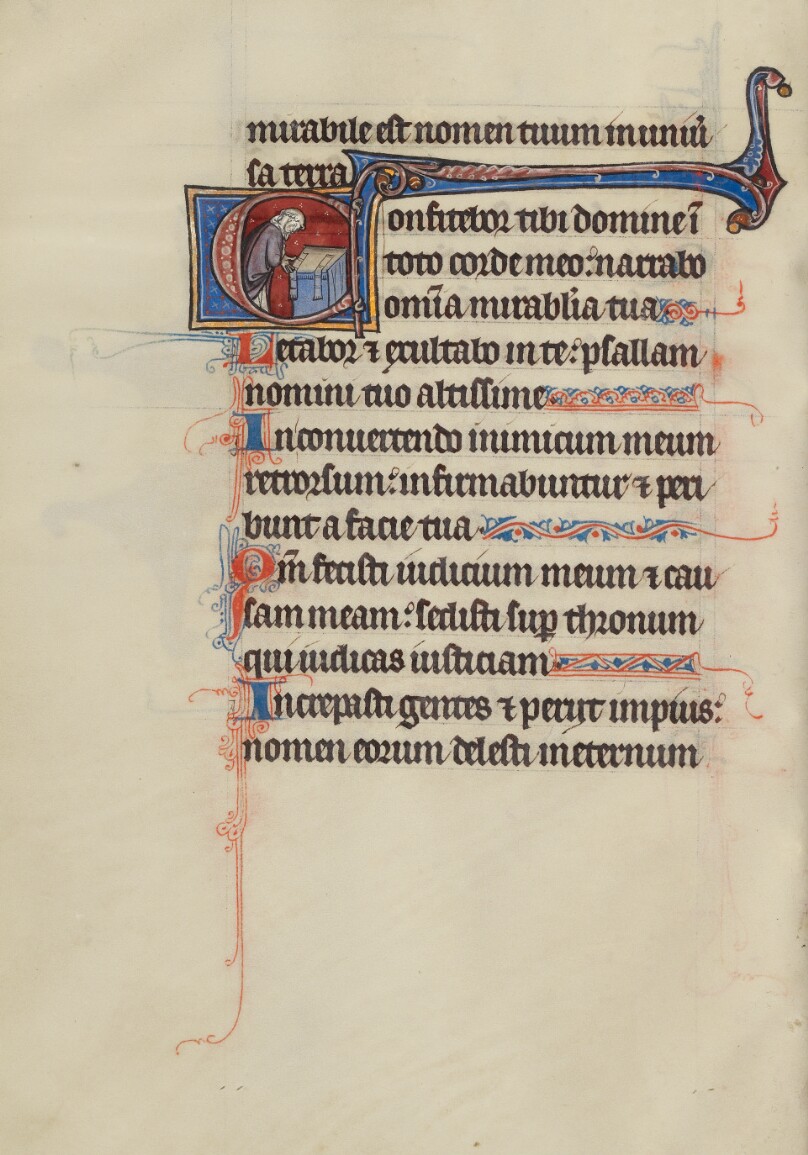 mirabile est nomen tuum in uniũ
sa terra
Confitebor tibi domine ĩ
toto corde meo: narrabo
om̃ia mirabl̃ia tua
Letabor ⁊ exultabo in te: psallam
nomini tuo altissime
In conuertendo inimicum meum
retrorsum: infirmabuntur ⁊ peri
bunt a facie tua
Qm̃ fecisti iudicium meum ⁊ cau
sam meam: sedisti suꝑ thronum
qui iudicas iusticiam
Increpasti gentes ⁊ periit impius:
nomen eorum delesti in eternum